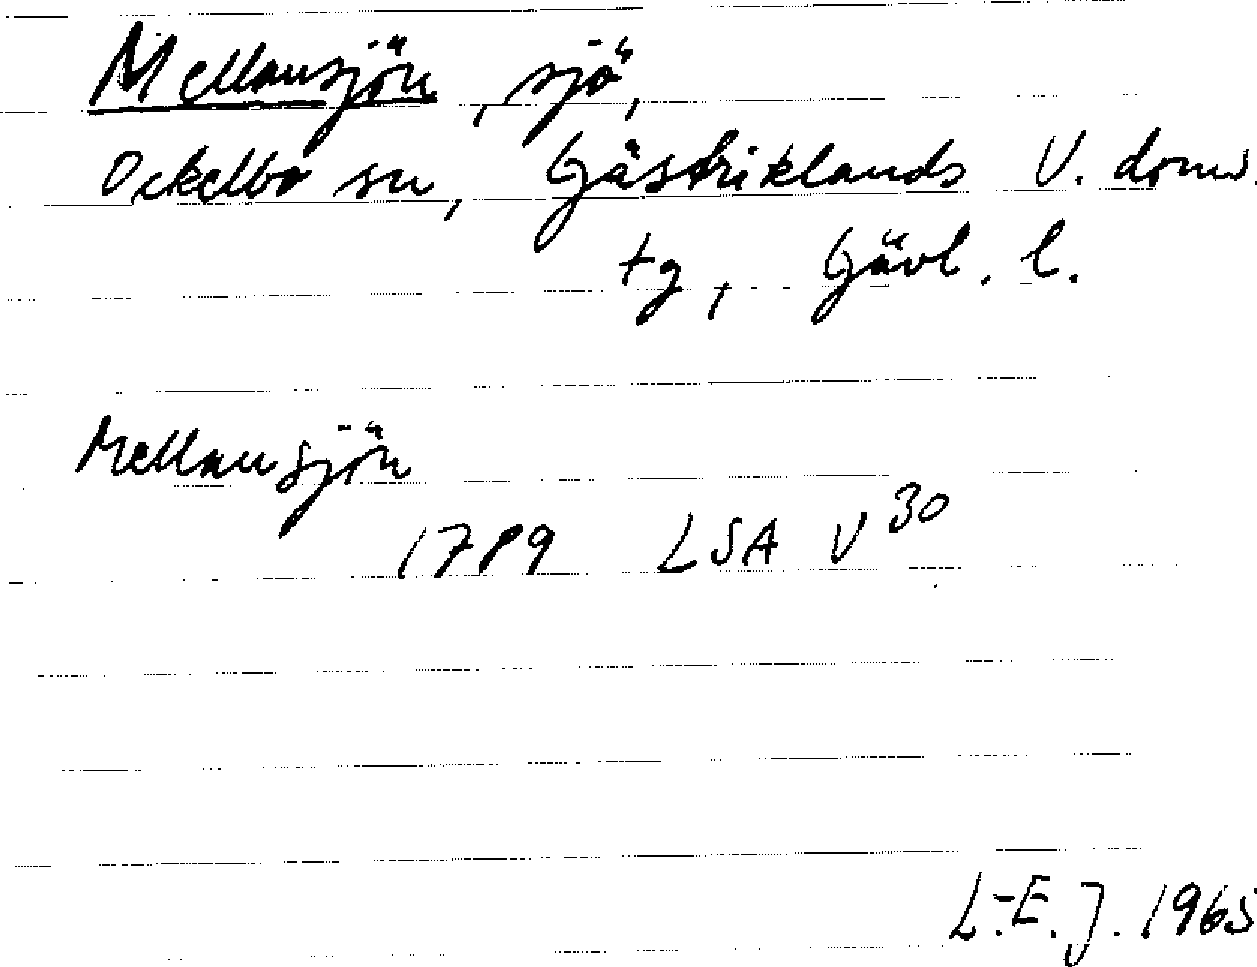 Mellansjön, sjö,
Ockelbo sn, Gästriklands V. doms.
tg, Gävl. l.
Mellansjön
1789 LSA V 30
L.-E. J. 1965